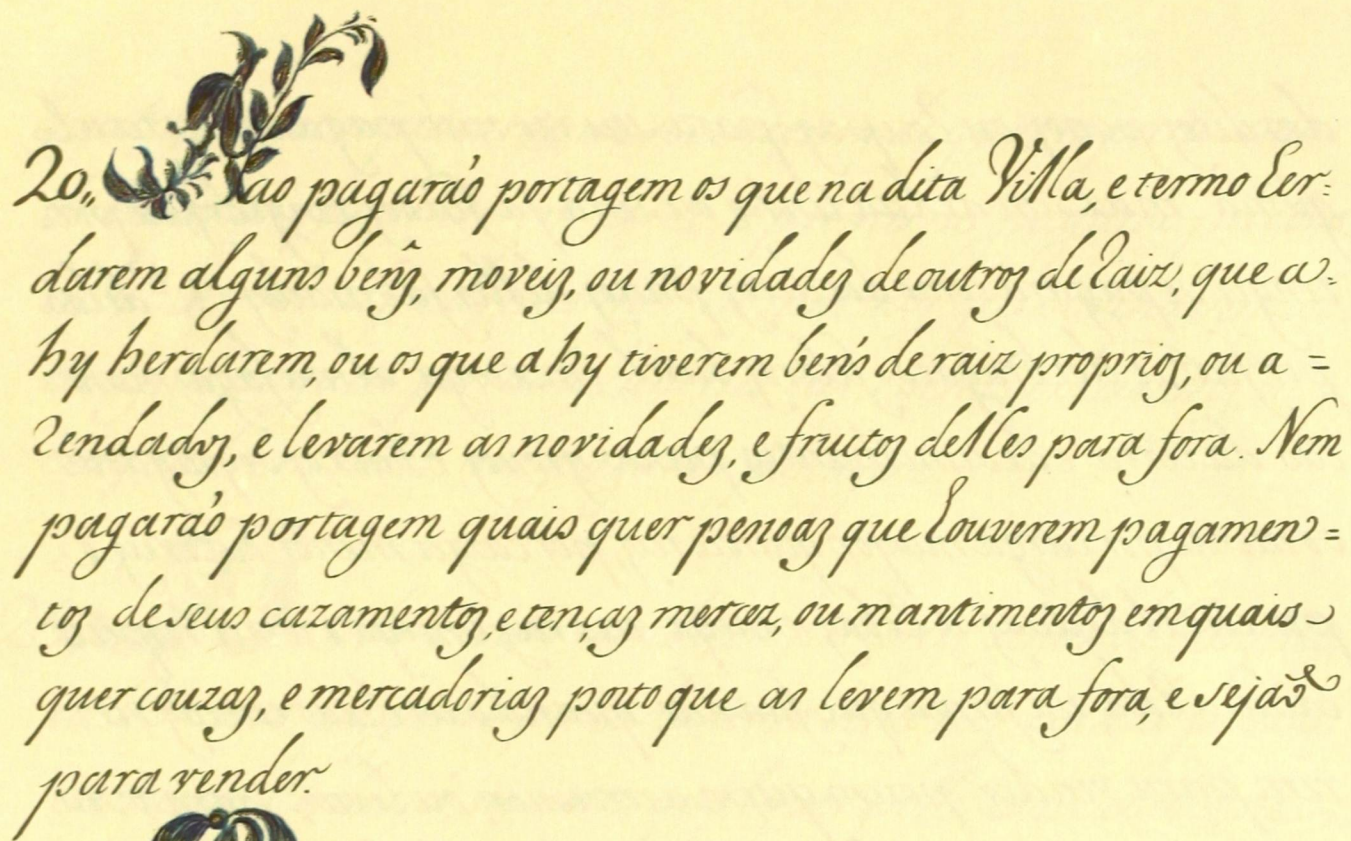 20,, Nao pagaráõ portagem os que na dita Villa, e termo her:
darem alguns benz, moveiz, ou novidadez de outroz de Raiz, que a:
hy herdarem, ou os que a hy tiverem bens de raiz proprioz, ou a =
Rendadoz, e levarem as novidadez, e fructoz delles para fora. Nem
pagaráõ portagem quais quer pessoaz que houverem pagamen=
toz de seus cazamentoz, e tençaz mercez, ou mantimentoz em quais-
quer couzaz, e mercadoriaz posto que as levem para fora, e sejaõ
para vender.